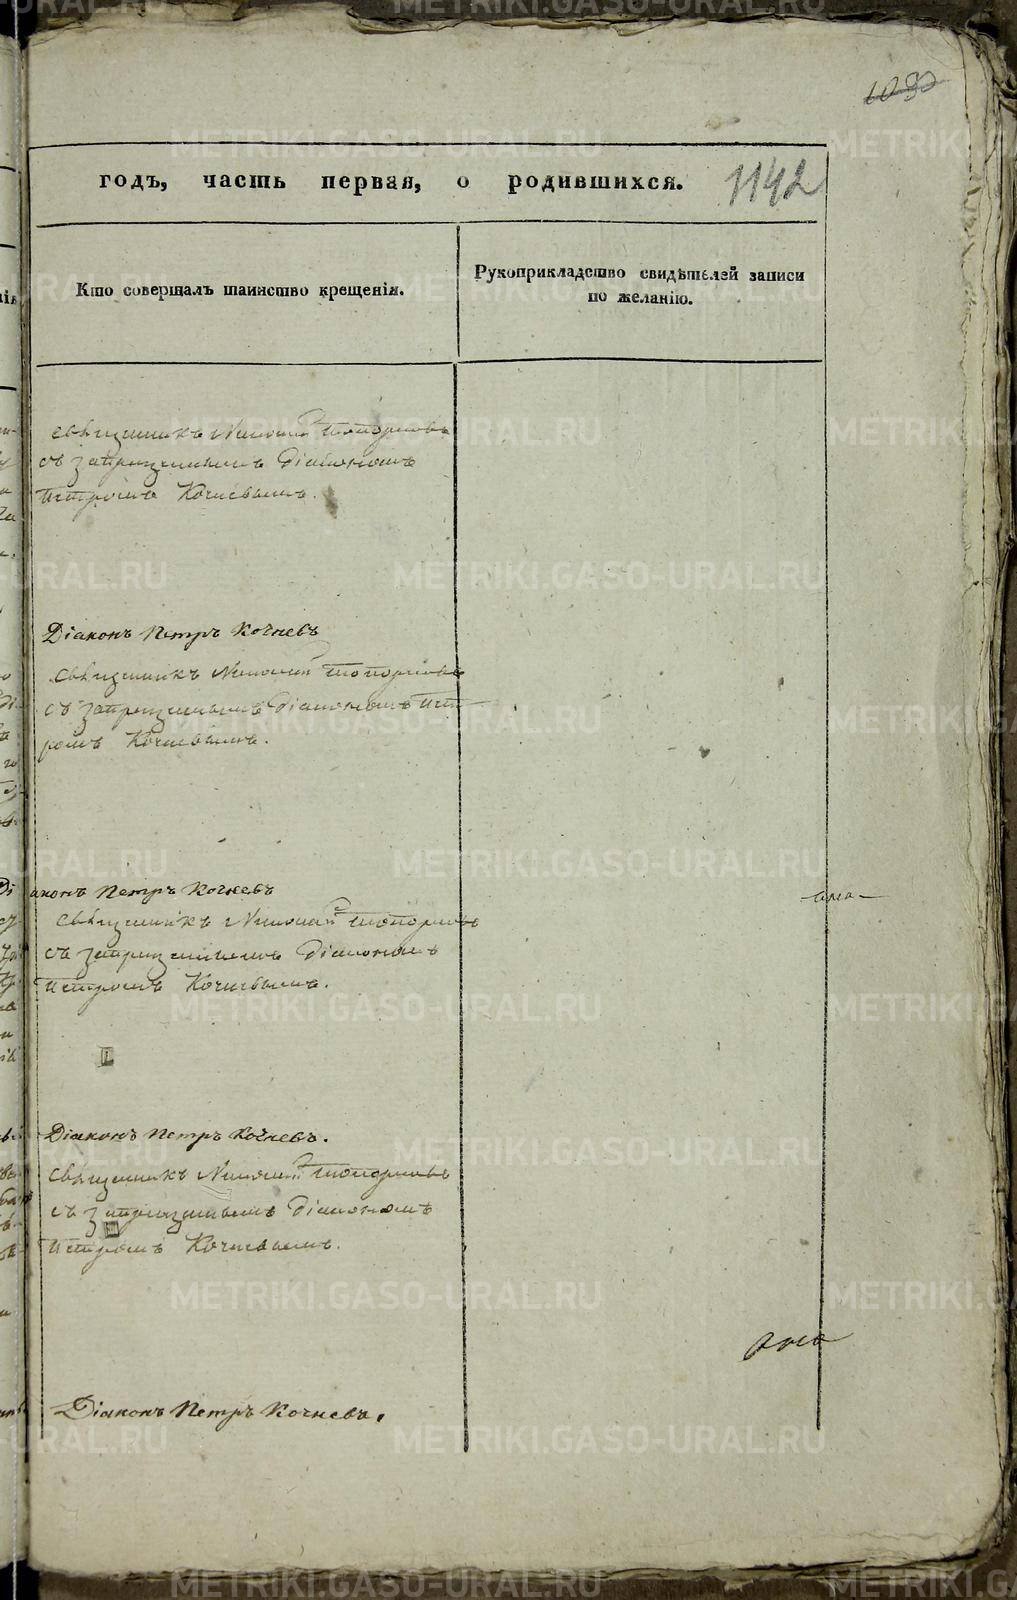 1030
1142
годъ, часть первая, о родившихся.
Кто совершалъ таинство крещенія.
Рукоприкладство свидѣтелей записи
по желанію.
священникъ Николай Топорковъ
съ запрещеннымъ діакономъ
Петромъ Кочневымъ.
Діаконъ Петръ Кочневъ
священникъ Николай Топорковъ
съ запрещеннымъ діакономъ Пет
ромъ Кочневымъ.
Діаконъ Петръ Кочневъ
священникъ Николай Топорковъ
съ запрещеннымъ Діакономъ
Петромъ Кочневымъ.
Діаконъ Петръ Кочневъ.
священникъ Николай Топорковъ
съ запрещеннымъ Діакономъ
Петромъ Кочневымъ.
Діаконъ Петръ Кочневъ.
METRIKI.GASO-URAL.RU